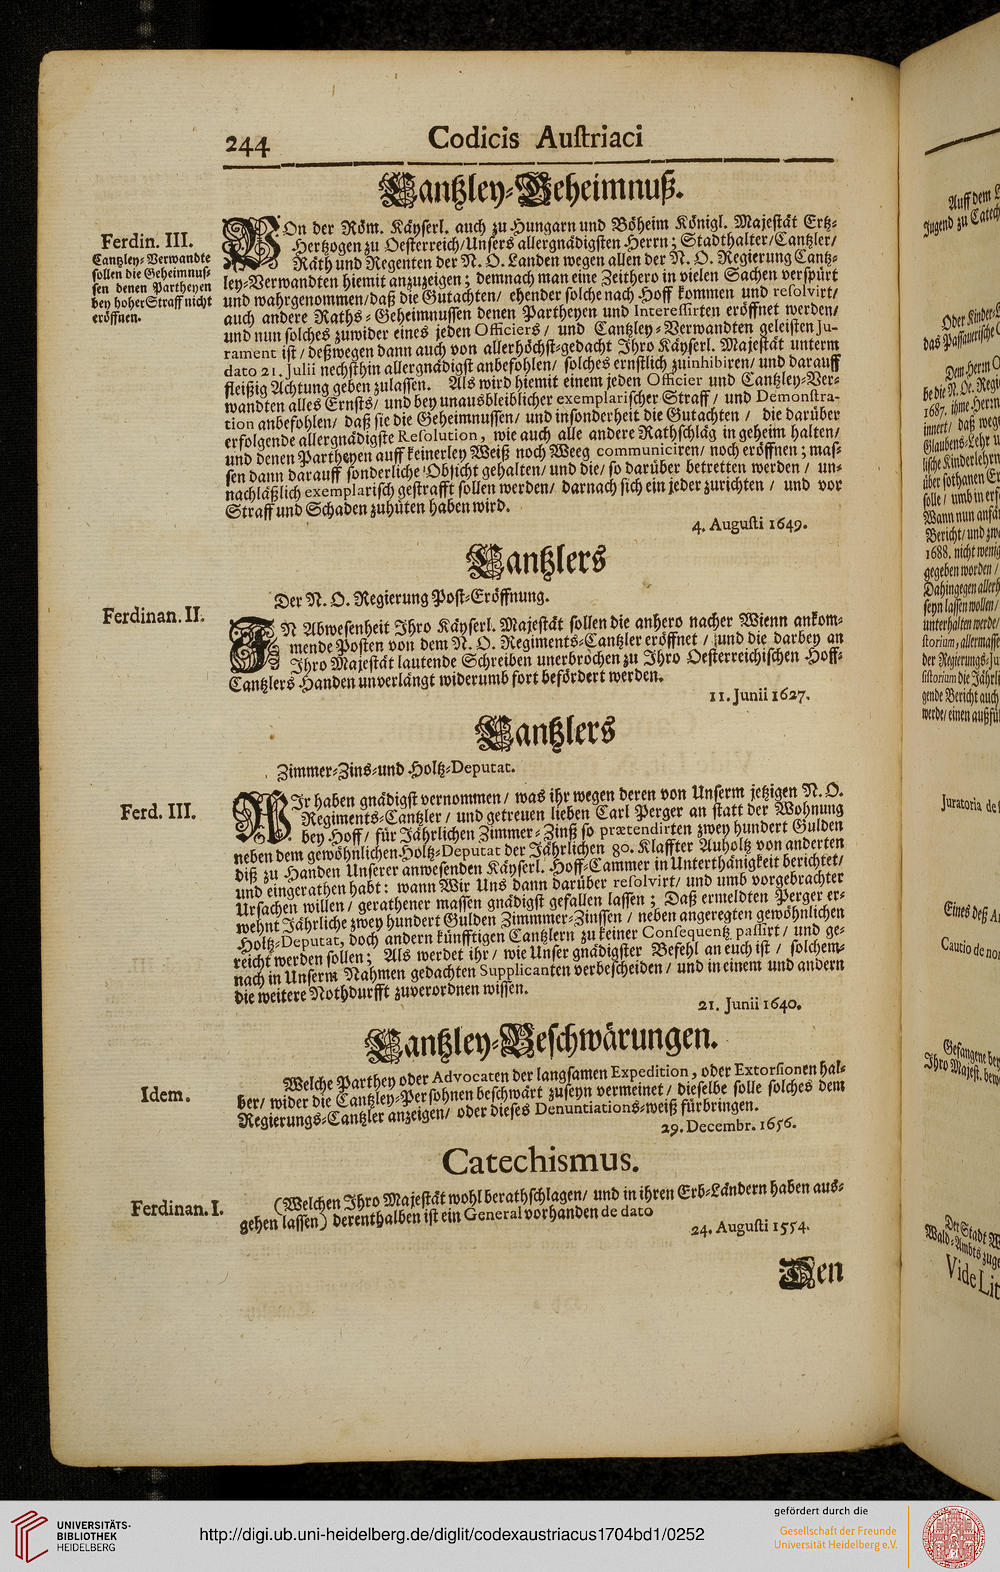 244
Codicis Auſtriaci
Cantzley-Geheimnuß.
Ferdin. III.
Cantzley-Verwandte
ſollen die Geheimnuſ-
ſen denen Partheyen
bey hoher Straff nicht
eröffnen.
VOn der Röm. Käyſerl. auch zu Hungarn und Böheim Königl. Majeſtät Ertz-
Hertzogen zu Oeſterreich/Unſers allergnädigſten Herrn; Stadthalter/Cantzler/
Räth und Regenten der N. O. Landen wegen allen der N. O. Regierung Cantz-
ley-Verwandten hiemit anzuzeigen; demnach man eine Zeithero in vielen Sachen verſpürt
und wahrgenommen/daß die Gutachten/ ehender ſolche nach Hoff kommen und reſolvirt/
auch andere Raths-Geheimnuſſen denen Partheyen und Intereſſirten eröffnet werden/
und nun ſolches zuwider eines jeden Officiers/ und Cantzley-Verwandten geleiſten Ju-
rament iſt/ deßwegen dann auch von allerhöchſt-gedacht Ihro Käyſerl. Majeſtät unterm
dato 21. Julii nechſthin allergnädigſt anbefohlen/ ſolches ernſtlich zuinhibiren/ und darauff
fleißig Achtung geben zulaſſen. Als wird hiemit einem jeden Officier und Cantzley-Ver-
wandten alles Ernſts/ und bey unausbleiblicher exemplariſcher Straff/ und Demonſtra-
tion anbefohlen/ daß ſie die Geheimnuſſen/ und inſonderheit die Gutachten/ die darüber
erfolgende allergnädigſte Reſolution, wie auch alle andere Rathſchläg in geheim halten/
und denen Partheyen auff keinerley Weiß noch Weeg communiciren/ noch eröffnen; maſ-
ſen dann darauff ſonderliche Obſicht gehalten/ und die/ ſo darüber betretten werden/ un-
nachläßlich exemplariſch geſtrafft ſollen werden/ darnach ſich ein jeder zurichten/ und vor
Straff und Schaden zuhüten haben wird.
4. Auguſti 1649.
Cantzlers
Der N. O. Regierung Poſt-Eröffnung.
Ferdinan. II.
IN Abweſenheit Ihro Käyſerl. Majeſtät ſollen die anhero nacher Wienn ankom-
mende Poſten von dem N. O. Regiments-Cantzler eröffnet/ und die darbey an
Ihro Majeſtät lautende Schreiben unerbrochen zu Ihro Oeſterreichiſchen Hoff-
Cantzlers Handen unverlängt widerumb fort befördert werden.
11. Junii 1627.
Cantzlers
Zimmer-Zins-und Holtz-Deputat.
Ferd. III.
WIr haben gnädigſt vernommen/ was ihr wegen deren von Unſerm jetzigen N. O.
Regiments-Cantzler/ und getreuen lieben Carl Perger an ſtatt der Wohnung
bey Hoff/ für Jährlichen Zimmer-Zinß ſo prætendirten zwey hundert Gulden
neben dem gewöhnlichen Holtz-Deputat der Jährlichen 80. Klaffter Auholtz von anderten
diß zu Handen Unſerer anweſenden Käyſerl. Hoff-Cammer in Unterthänigkeit berichtet/
und eingerathen habt: wann Wir Uns dann darüber reſolvirt/ und umb vorgebrachter
Urſachen willen/ gerathener maſſen gnädigſt gefallen laſſen; Daß ermeldten Perger er-
wehnt Jährliche zwey hundert Gulden Zimmmer-Zinſſen/ neben angeregten gewöhnlichen
Holtz-Deputat, doch andern künfftigen Cantzlern zu keiner Conſequentz paſſirt/ und ge-
reicht werden ſollen; Als werdet ihr/ wie Unſer gnädigſter Befehl an euch iſt/ ſolchem-
nach in Unſerm Nahmen gedachten Supplicanten verbeſcheiden/ und in einem und andern
die weitere Nothdurfft zuverordnen wiſſen.
21. Junii 1640.
Cantzley-Beſchwärungen.
Idem.
Welche Parthey oder Advocaten der langſamen Expedition, oder Extorſionen hal-
ber/ wider die Cantzley-Perſohnen beſchwärt zuſeyn vermeinet/ dieſelbe ſolle ſolches dem
Regierungs-Cantzler anzeigen/ oder dieſes Denuntiations-weiß fürbringen.
29. Decembr. 1656.
Catechismus.
Ferdinan. I.
(Welchen Ihro Majeſtät wohl berathſchlagen/ und in ihren Erb-Ländern haben aus-
gehen laſſen) derenthalben iſt ein General vorhanden de dato
24. Auguſti 1554.
Den
Auff dem
Jugend zu
Oder
das
Dem Herrn
1687. ihme
innert/ daß
Glaubens-Lehr
über ſothanen
ſolle/ umb in
Wann nun
Bericht/ und
1688. nicht
gegeben worden/
Dahingegen
ſeyn laſſen wollen/
unterhalten werde/
der Regierungs-
die
gende Bericht auch
werde/ einen
Juratoria de
Eines deß
Cautio de
Gefangene
Ihro Majeſt.
Der Stadt
Wald-Ambts
Vide Lit
UNIVERSITÄTS-
BIBLIOTHEK
HEIDELBERG
http://digi.ub.uni-heidelberg.de/diglit/codexaustriacus1704bd1/0252
gefördert durch die
Gesellschaft der Freunde
Universität Heidelberg e.V.